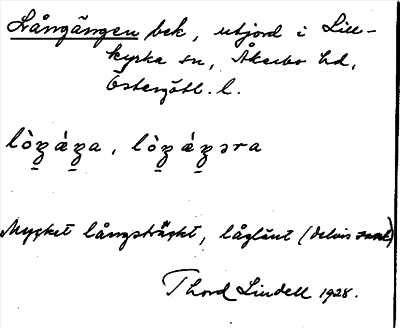 Långängen bek, utjord i Lill-
kyrka sn, Åkerbo hd,
Östergötl. l.
lòŋáŋa, lòŋáŋəra
Mycket långsträckt, låglänt (delvis
Thord Lindell 1928.